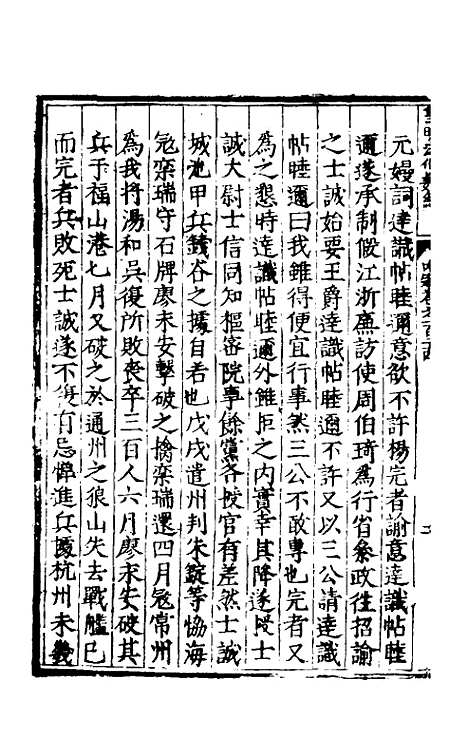 元嫚詞達識帖睦邇意欲不許楊完者諭意達識帖睦
邇遂承制假江浙廉訪使周伯琦爲行省叅政徃招諭
之士誠始要王爵達識帖睦邇不許又以三公請達識
帖睦邇曰我雖得便宜行事然三公不敢專也完者又
爲之懇時達識帖睦邇外雖拒之内實幸其降遂授士
誠大尉士信同知樞宻院事餘黨各授官有差然士誠
城池甲兵錢谷之據自若也戊戌遣州判朱錠等恊海
冦欒瑞守石牌廖永安擊破之擒欒瑞還四月冦常州
爲我將湯和吳復所敗喪卒三百人六月廖永安破其
兵于福山港七月又破之於通州之狼山失去戰艦巳
而完者兵敗死士誠遂不復有忌憚進兵㨿杭州未幾